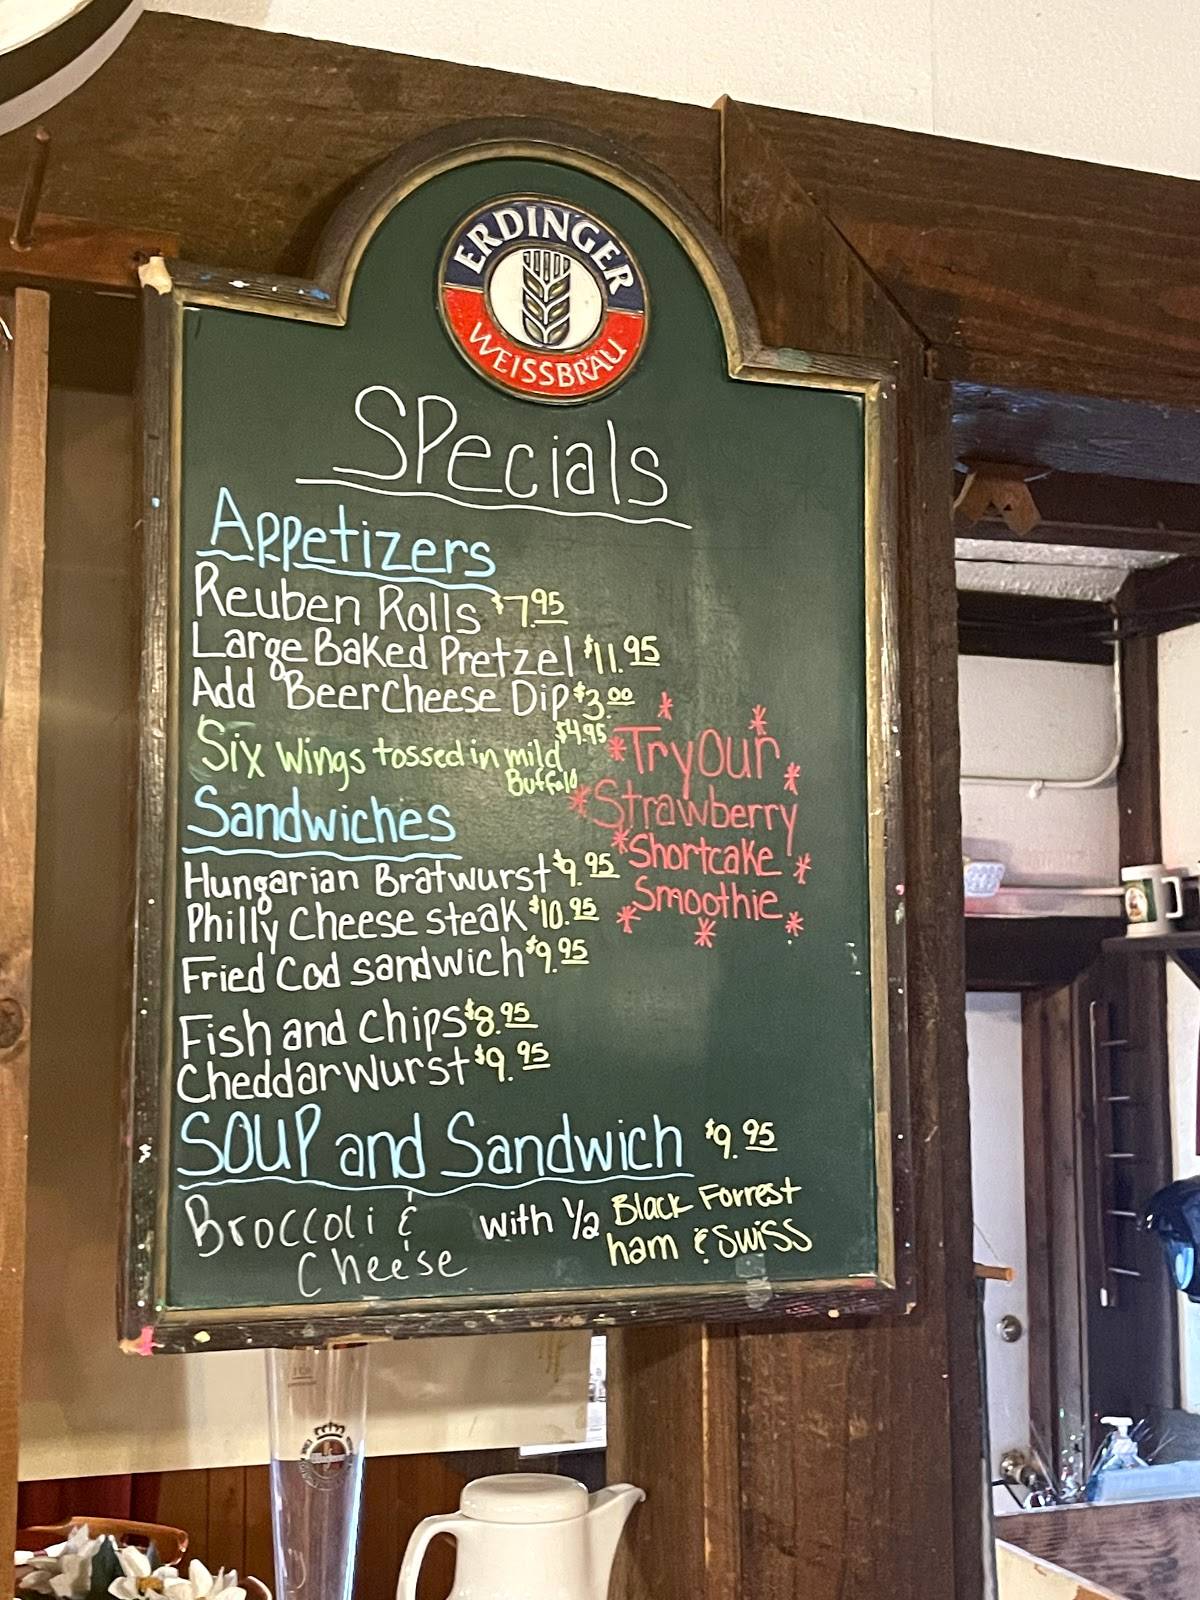 ERDINGER
WEISSBRÄU
SPecials
Appetizers
Reuben Rolls $7.95
Large Baked Pretzel $11.95
Add Beer Cheese Dip $3.00
Six Wings tossed in mild $4.95
Buffalo
*Try Our
Strawberry
Shortcake
Smoothie
Sandwiches
Hungarian Bratwurst $9.95
Philly Cheese steak $10.95
Fried Cod sandwich $9.95
Fish and Chips $8.95
Cheddar Wurst $9.95
SOUP and Sandwich $9.95
Broccoli & Cheese
with 1/2 Black Forrest
ham & Swiss